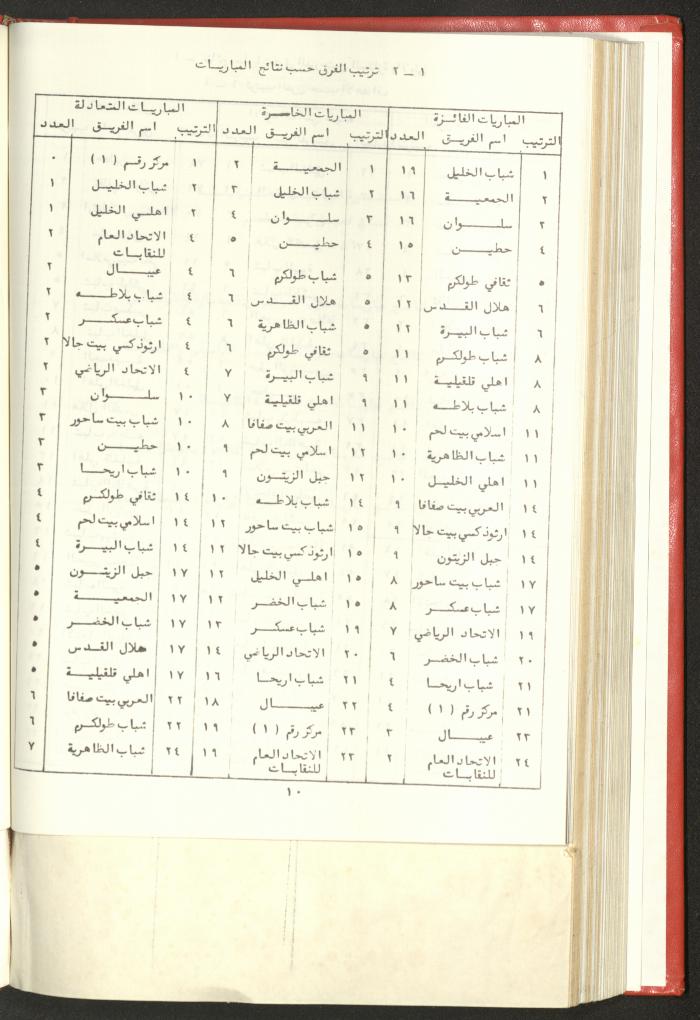 ١ – ٢ ترتيب الفرق حسب نتائج المباريات
المباريات الفائزة المباريات الخاسرة المباريات المتعادلة
الترتيب اسم الفريق العدد الترتيب اسم الفريق العدد الترتيب اسم الفريق العدد
١ شباب الخليل ١٩ ١ الجمعية ٢ ١ مركز رقم (١) ٠
٢ الجمعية ١٦ ٢ شباب الخليل ٣ ٢ شباب الخليل ١
٢ سلوان ١٦ ٣ سلوان ٤ ٢ اهلي الخليل ١
٤ حطين ١٥ ٤ حطين ٥ ٤ الاتحاد العام ٢
للنقابات
٥ ثقافي طولكرم ١٣ ٥ شباب طولكرم ٦ ٤ عيبال ٢
٦ هلال القدس ١٢ ٥ هلال القدس ٦ ٤ شباب بلاطه ٢
٦ شباب البيرة ١٢ ٥ شباب الظاهرية ٦ ٤ شباب عسكر ٢
٨ شباب طولكرم ١١ ٥ ثقافي طولكرم ٦ ٤ ارثوذكسي بيت جالا ٢
٨ اهلي قلقيلية ١١ ٩ شباب البيرة ٧ ٤ الاتحاد الرياضي ٢
٨ شباب بلاطه ١١ ٩ اهلي قلقيلية ٧ ١٠ سلوان ٣
١١ اسلامي بيت لحم ١٠ ١١ العربي بيت صفافا ٨ ١٠ شباب بيت ساحور ٣
١١ شباب الظاهرية ١٠ ١٢ اسلامي بيت لحم ٩ ١٠ حطين ٣
١١ اهلي الخليل ١٠ ١٢ جبل الزيتون ٩ ١٠ شباب اريحا ٣
١٤ العربي بيت صفافا ٩ ١٤ شباب بلاطه ١٠ ١٤ ثقافي طولكرم ٤
١٤ ارثوذكسي بيت جالا ٩ ١٥ شباب بيت ساحور ١٢ ١٤ اسلامي بيت لحم ٤
١٤ جبل الزيتون ٩ ١٥ ارثوذكسي بيت جالا ١٢ ١٤ شباب البيرة ٤
١٧ شباب بيت ساحور ٨ ١٥ اهلي الخليل ١٢ ١٧ جبل الزيتون ٥
١٧ شباب عسكر ٨ ١٥ شباب الخضر ١٢ ١٧ الجمعية ٥
١٩ الاتحاد الرياضي ٧ ١٩ شباب عسكر ١٣ ١٧ شباب الخضر ٥
٢٠ شباب الخضر ٦ ٢٠ الاتحاد الرياضي ١٤ ١٧ هلال القدس ٥
٢١ شباب اريحا ٤ ٢١ شباب اريحا ١٦ ١٧ اهلي قلقيلية ٥
٢١ مركز رقم (١) ٤ ٢٢ عيبال ١٨ ٢٢ العربي بيت صفافا ٦
٢٣ عيبال ٣ ٢٣ مركز رقم (١) ١٩ ٢٢ شباب طولكرم ٦
٢٤ الاتحاد العام ٢ ٢٣ الاتحاد العام ١٩ ٢٤ شباب الظاهرية ٧
للنقابات للنقابات
١٠